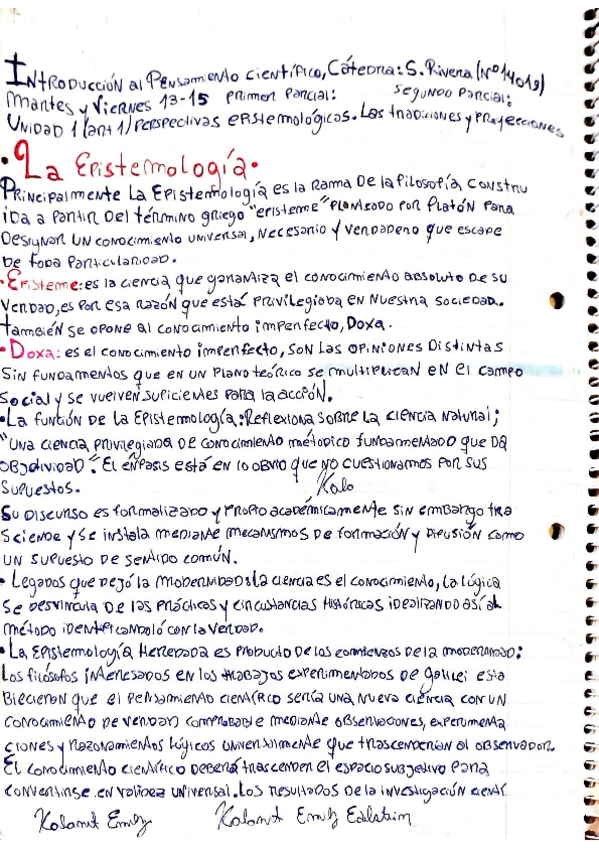 Introducción al Pensamiento Científico, Cátedra: S. Rivera (Nº 14019)
Martes y Viernes 13-15 Primer Parcial: Segundo Parcial:
Unidad 1 (art 1) Perspectivas epistemológicas. Las tradiciones y proyecciones
•La Epistemología•
Principalmente La Epistemología es la rama de la filosofía, constru
ida a partir del término griego "episteme" planteado por Platón para
designar un conocimiento universal, necesario y verdadero que escape
de toda particularidad.
•Episteme: es la ciencia que garantiza el conocimiento absoluto de su
verdad, es por esa razón que está privilegiada en nuestra sociedad.
también se opone al conocimiento imperfecto, Doxa.
•Doxa: es el conocimiento imperfecto, son las opiniones distintas
sin fundamentos que en un plano teórico se multiplican en el campo
social y se vuelven suficientes para la acción.
•La función de la Epistemología: Reflexiona sobre la ciencia natural;
"una ciencia privilegiada de conocimiento métodico fundamentado que da
objetividad". El énfasis está en lo obvio que no cuestionamos por sus
supuestos. Kala
Su discurso es formalizado y propio académicamente sin embargo tra
sciende y se instala mediante mecanismos de formación y difusión como
un supuesto de sentido común.
• Legados que dejó la modernidad: La ciencia es el conocimiento, la lógica
se desvincula de las prácticas y circustancias históricas idealizando así al
método identificandoló con la verdad.
• La Epistemología Heredada es producto de los comienzos de la modernidad:
Los filósofos interesados en los trabajos experimentados de Galilei esta
blecieron que el pensamiento científico sería una nueva ciencia con un
conocimiento de verdad, comprobable mediante observaciones, experimenta
ciones y razonamientos lógicos universalmente que trascenderían al observador.
El conocimiento científico deberá trascender el espacio subjetivo para
convertirse en validez universal. Los resultados de la investigación cientí
Kalamit Emily Kalamit Emily